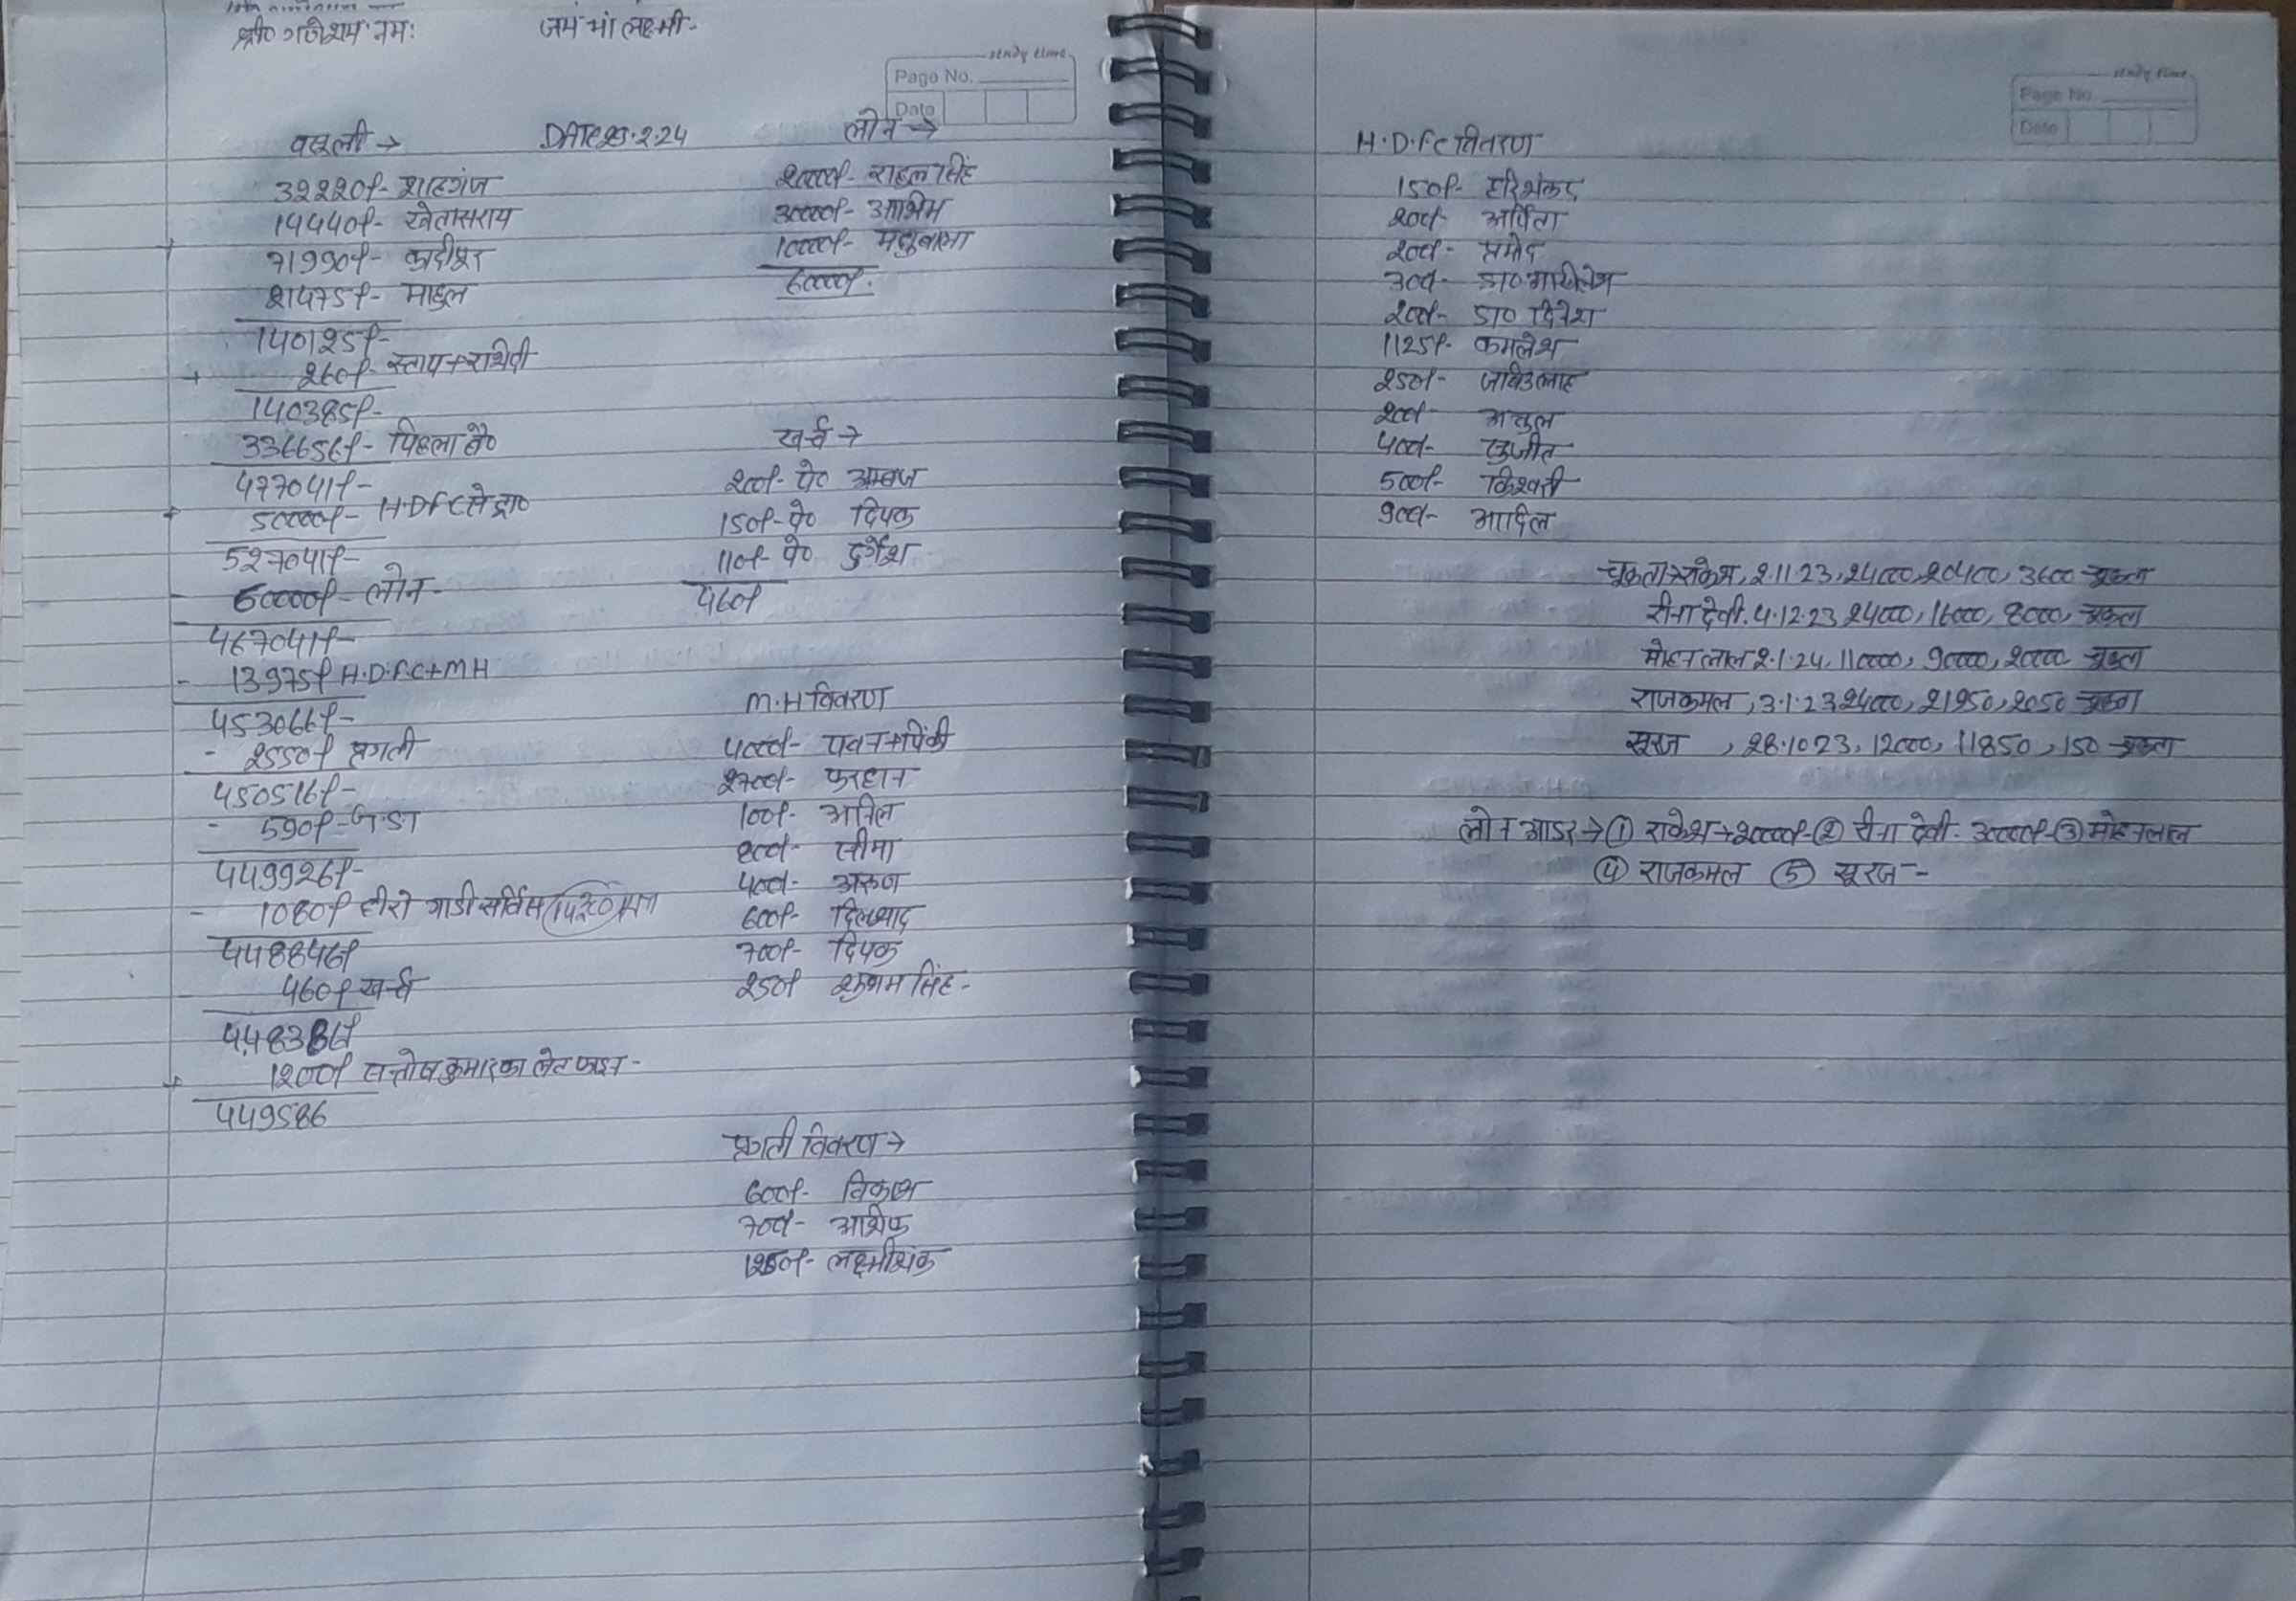 श्री० गणेशाय नमः
जय मां लक्ष्मी-
study time
Page No.
Date
वसूली →
DATE 23.2.24
32220/- शाहगंज
14440/- खेतासराय
71990/- कादीपुर
21475/- माहुल
140125/-
+ 260/- स्टाप+राशेदी
140385/-
336656/- पिछला बै०
477041/-
+ 50000/- H.D.F.C से ट्रा०
527041/-
- 60000/- लोन-
467041/-
- 13975/- H.D.F.C+MH
453066/-
- 2550/- प्रगती
450516/-
- 590/- ज.डा
449926/-
- 1080/- हीरो गाडी सर्विस (14230)
448846/-
- 460/- खर्च
448386/-
+ 1200/- सन्तोष कुमार का लेट फाइन-
449586
लोन →
20000/- राहुल सिंह
30000/-
10000/- मधुबाला
60000/-
खर्च →
200/- पे० अम्बुज
150/- पे० दिपक
110/- पे० दुर्गेश
460/-
M.H विवरण
4000/- पवन+पिंकी
2700/- फरहान
100/- अनिल
800/- सीमा
400/- अरुण
600/- दिलशाद
700/- दिपक
250/- शुभम सिंह-
प्रगती विवरण →
600/- विकाश
700/- आशिफ
1250/-
study time
Page No.
Date
H.D.F.C विवरण
150/- हरिशंकर
200/- अर्पिता
200/- प्रमोद
300/- डा० अखिलेश
200/- डा० दिनेश
1125/- कमलेश
250/-
200/- अतुल
400/- सुजीत
500/- किश्वरी
900/- आदिल
चूकता→राकेश, 2.11.23, 24000, 20400, 3600 चूकता
रीना देवी. 4.12.23, 24000, 16000, 8000, चूकता
मोहन लाल 2.1.24, 110000, 90000, 20000 चूकता
राजकमल, 3.1.23 24000, 21950, 2050 चूकता
सूरज, 28.10.23, 12000, 11850, 150 चूकता
लोन आडर → ① राकेश→20000/- ② रीना देवी- 30000/- ③ मोहनलाल
④ राजकमल ⑤ सूरज -